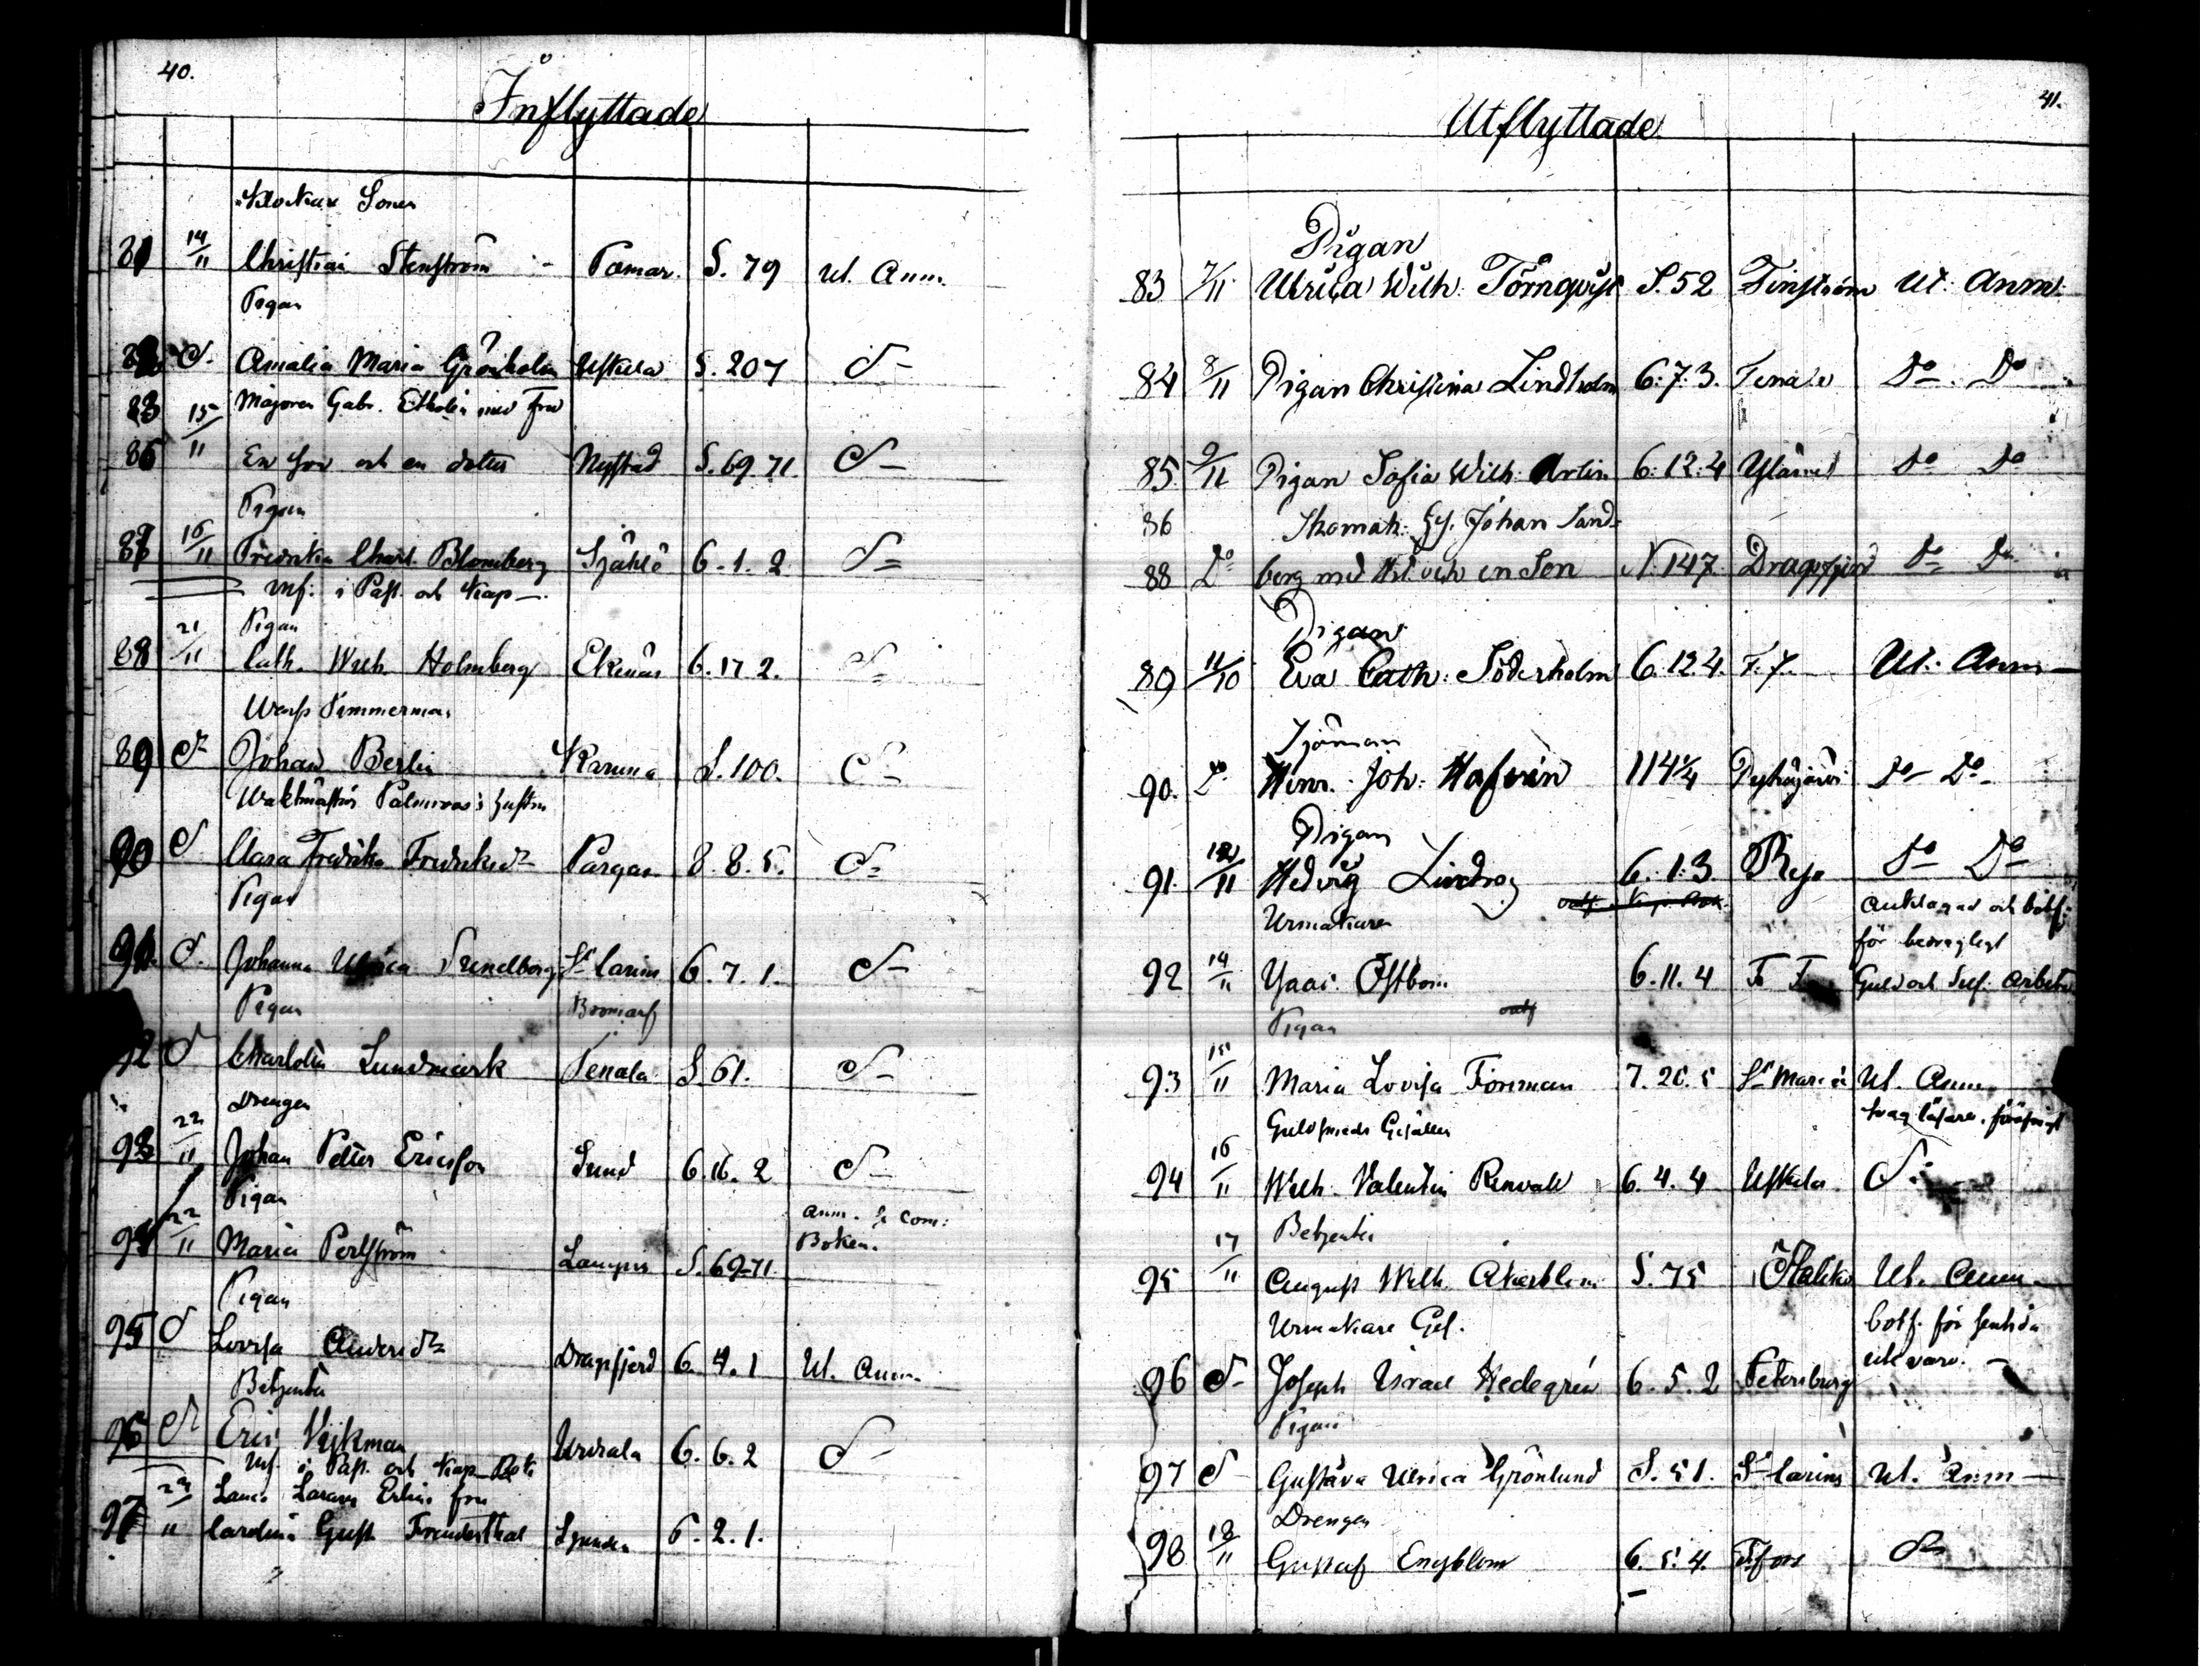 40.
Inflyttade
Klockare Sonen
81 14/11 Christian Stenström - Pamar. S. 79 Ut. Anm.
Pigan
82 d. Amalia Maria Grönholm Uskela S. 207 d-
83 15/11 Majoren Gabr. Etholén med fru
86 En son och en dotter Nystad S. 69 71. d-
Pigan
87 16/11 Fredrika Charl. Blomberg Själö 6. 1. 2 d-
inf. i Past. och Kap -
Pigan
88 21/11 Cath. Wilh. Holmberg Ekenäs 6. 17 2. d-
Timmerman
89 d- Johan Berlin Karuna S. 100. d-
Waktmästar Palmroos's hustru
90 d Clara Fredrika Fredriksdr Pargas 8. 8. 5. d-
Pigan
91. d. Johanna Ulrica Sundberg St Carins 6. 7. 1. d-
Pigan Bromarf
92 d Charlotta Lundmark Tenala S. 61. d-
Drengen
93 22/11 Johan Petter Ericsson Sund 6. 16. 2 d-
Pigan Anm. i Com:
94 22/11 Maria Perlström Lampis S. 69-71 Boken.
Pigan
95 d Lovisa Andersdr Dragsfjerd 6. 4. 1 Ut. Anm.
Betjenten
96 d Eric Vijkman Urdiala 6. 6. 2 d-
inf. i Past. och Kap-Bok
97 23/11 fru
Carolina Gust. Freudenthal 6. 2. 1.
41.
Utflyttade
Pigan
83 7/11 Ulrica Wilh: Törnqvist S. 52 Finström Ut. Anm.
84 8/11 Pigan Christina Lindholm 6. 7. 3. Tenala Do. Do
85 9/11 Pigan Sofia Wilh: Artin 6. 12. 4 Yläne Do Do
86 Skomak: Gs. Johan Sand-
88 Do berg med Hu. och en Son N. 147. Dragsfjerd Do Do
Pigan
89 11/10 Eva Cath: Söderholm 6. 12. 4. F. 7. Ut. Anm -
Sjöman
90. Do Henr. Joh: Hafrén 114 1/4 Pyhäjärvi Do Do
Pigan
91. 12/11 Hedvig Lindroos 6. 1. 3. Reso Do Do
Urmakare Anklagad och bötf.
för bedrägligt
92 14/11 Isac Östbom 6. 11. 4 F. F. Guld och Silf. Arbete
Pigan
93 15/11 Maria Lovisa Forsman 7. 20. 5 St Mariæ Ut. Anm.
Guldsmeds Gesällen svag läsare.
94 16/11 Wilh. Valentin Renvall 6. 4. 4 Uskela d-
Betjenten
95 17/11 August Wilh. Åkerblom S. 75 Haliko Ut. Anm -
Urmakare Ges. bötf. för
utevaro. -
96 d- Joseph Israel Hedegrén 6. 5. 2 Petersburg
Pigan
97 d Gustava Ulrica Grönlund S. 51. St Carins Ut. Anm -
Drengen
98 18/11 Gustaf Engblom 6. 5. 4. H.fors d-